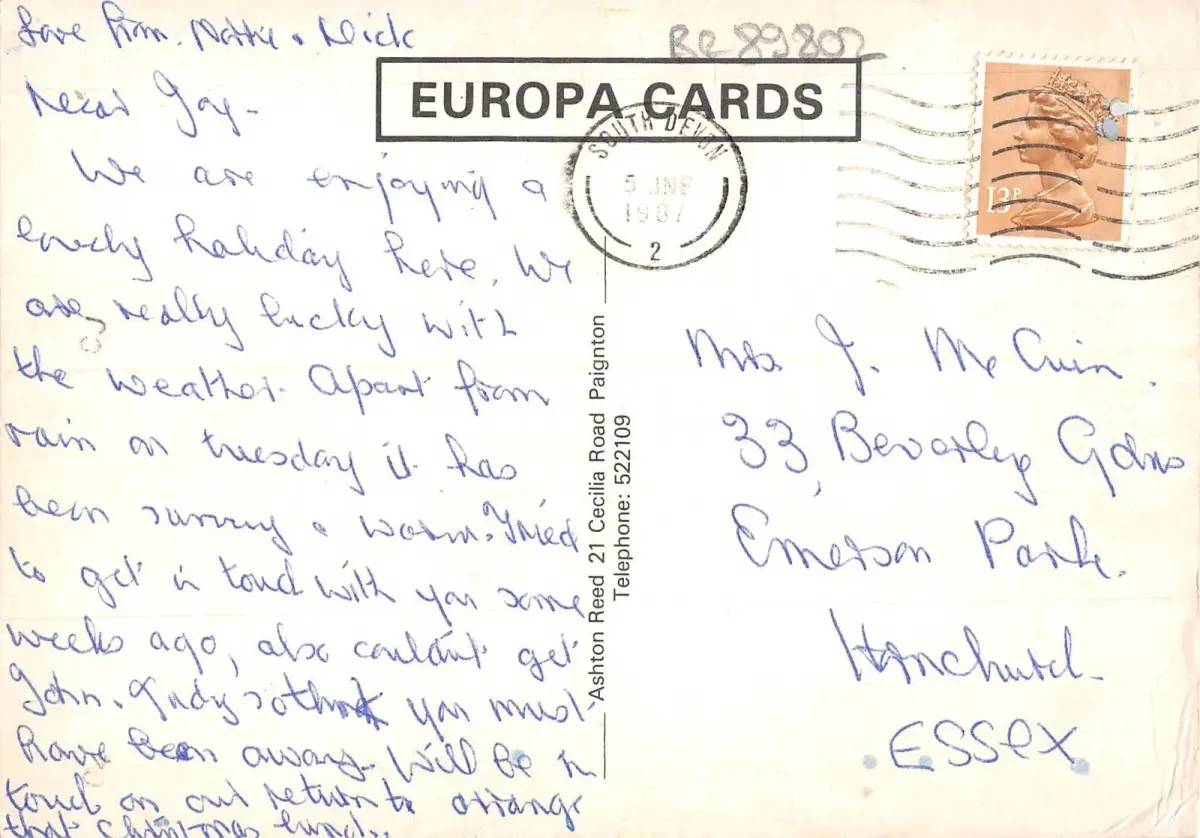 Love from. Mottie & Mick
BR 89802
EUROPA CARDS
SOUTH DEVON
5 JNE
1987
2
13P
Dear Joy-
We are enjoying a
lovely holiday here. We
are really lucky with
the weather. Apart from
rain on tuesday it has
been sunny & warm. Tried
to get in touch with you some
weeks ago, also couldn't get
John. Judy so think you must
have been away. Will be in
touch on our return to arrange
that Christmas lunch..
Ashton Reed 21 Cecilia Road Paignton
Telephone: 522109
Mrs J. Mc Cuin.
33, Beverley Gdns
Emerson Park.
Hornchurch-
ESSEX.